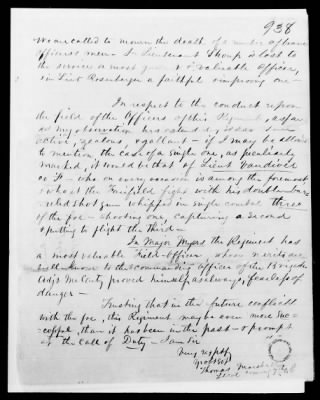 938
we are called to mourn the death of a number of brave
officers men. In Lieutenant Thorp is lost to
the service a most and valuable officer,
in Lieut Rosenberger a faithful one —
In respect to the conduct upon
the field of the Officers of this Regiment, as far
as my observation has extended, it has been
active, zealous, & gallant — if I may be allowed
to mention, the case of a single one, as peculiarly
marked, it would be that of Lieut Vandiver
co F — who on every occasion is among the foremost
in the Fairfield fight with his double bar-
relled shot gun whipped in single combat three
of the foe — shooting one, capturing a second
& putting to flight the third —
In Major Myers the Regiment has
a most valuable Field-officer, whose merits are
well known to the commanding officer of the Brigade
Adjt McCarty proved himself as always, fearless of
danger —
Trusting that in the future conflicts
with the foe, this Regiment may be even more suc-
cessful, than it has been in the past & prompt
at the call of Duty. I am Sir
Very respfy
Yr obt Svt
Thomas Marshall